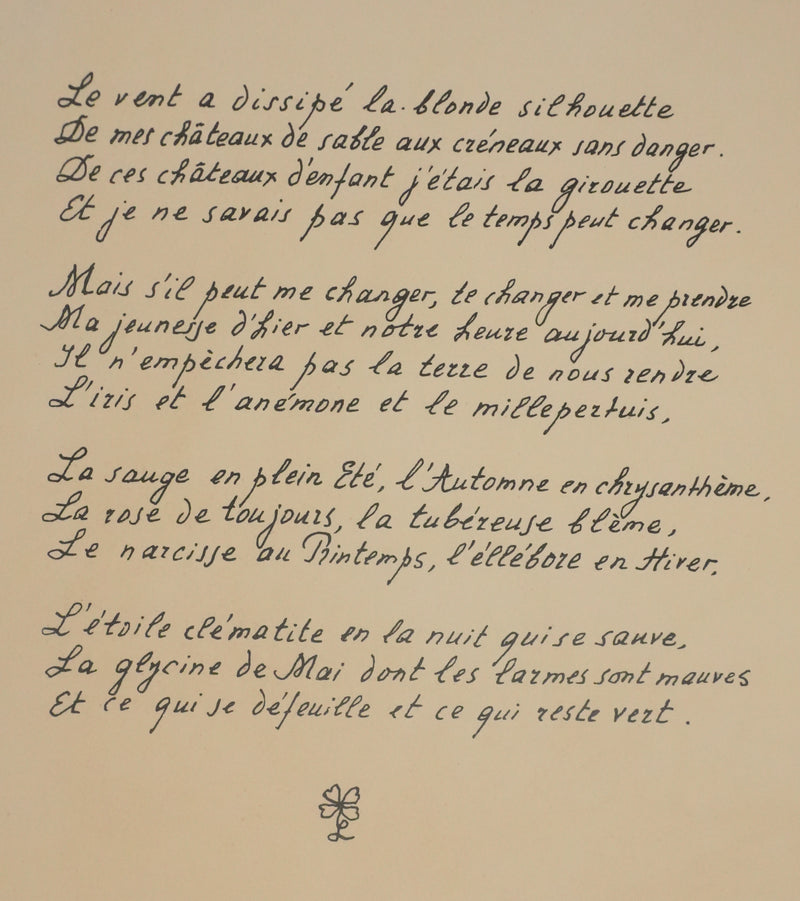 Le vent a dissipé la blonde silhouette
De mes châteaux de sable aux créneaux sans danger.
De ces châteaux d'enfant j'étais la girouette
Et je ne savais pas que le temps peut changer.
Mais s'il peut me changer, te changer et me prendre
Ma jeunesse d'hier et notre heure aujourd'hui,
Il n'empèchera pas la terre de nous rendre
L'iris et l'anémone et le millepertuis,
La sauge en plein Eté, l'Automne en chrysanthème,
La rose de toujours, la tubéreuse blème,
Le narcisse au Printemps, l'éllébore en Hiver.
L'étoile clématite en la nuit qui se sauve,
La glycine de Mai dont les larmes sont mauves
Et ce qui se défeuille et ce qui reste vert.
L